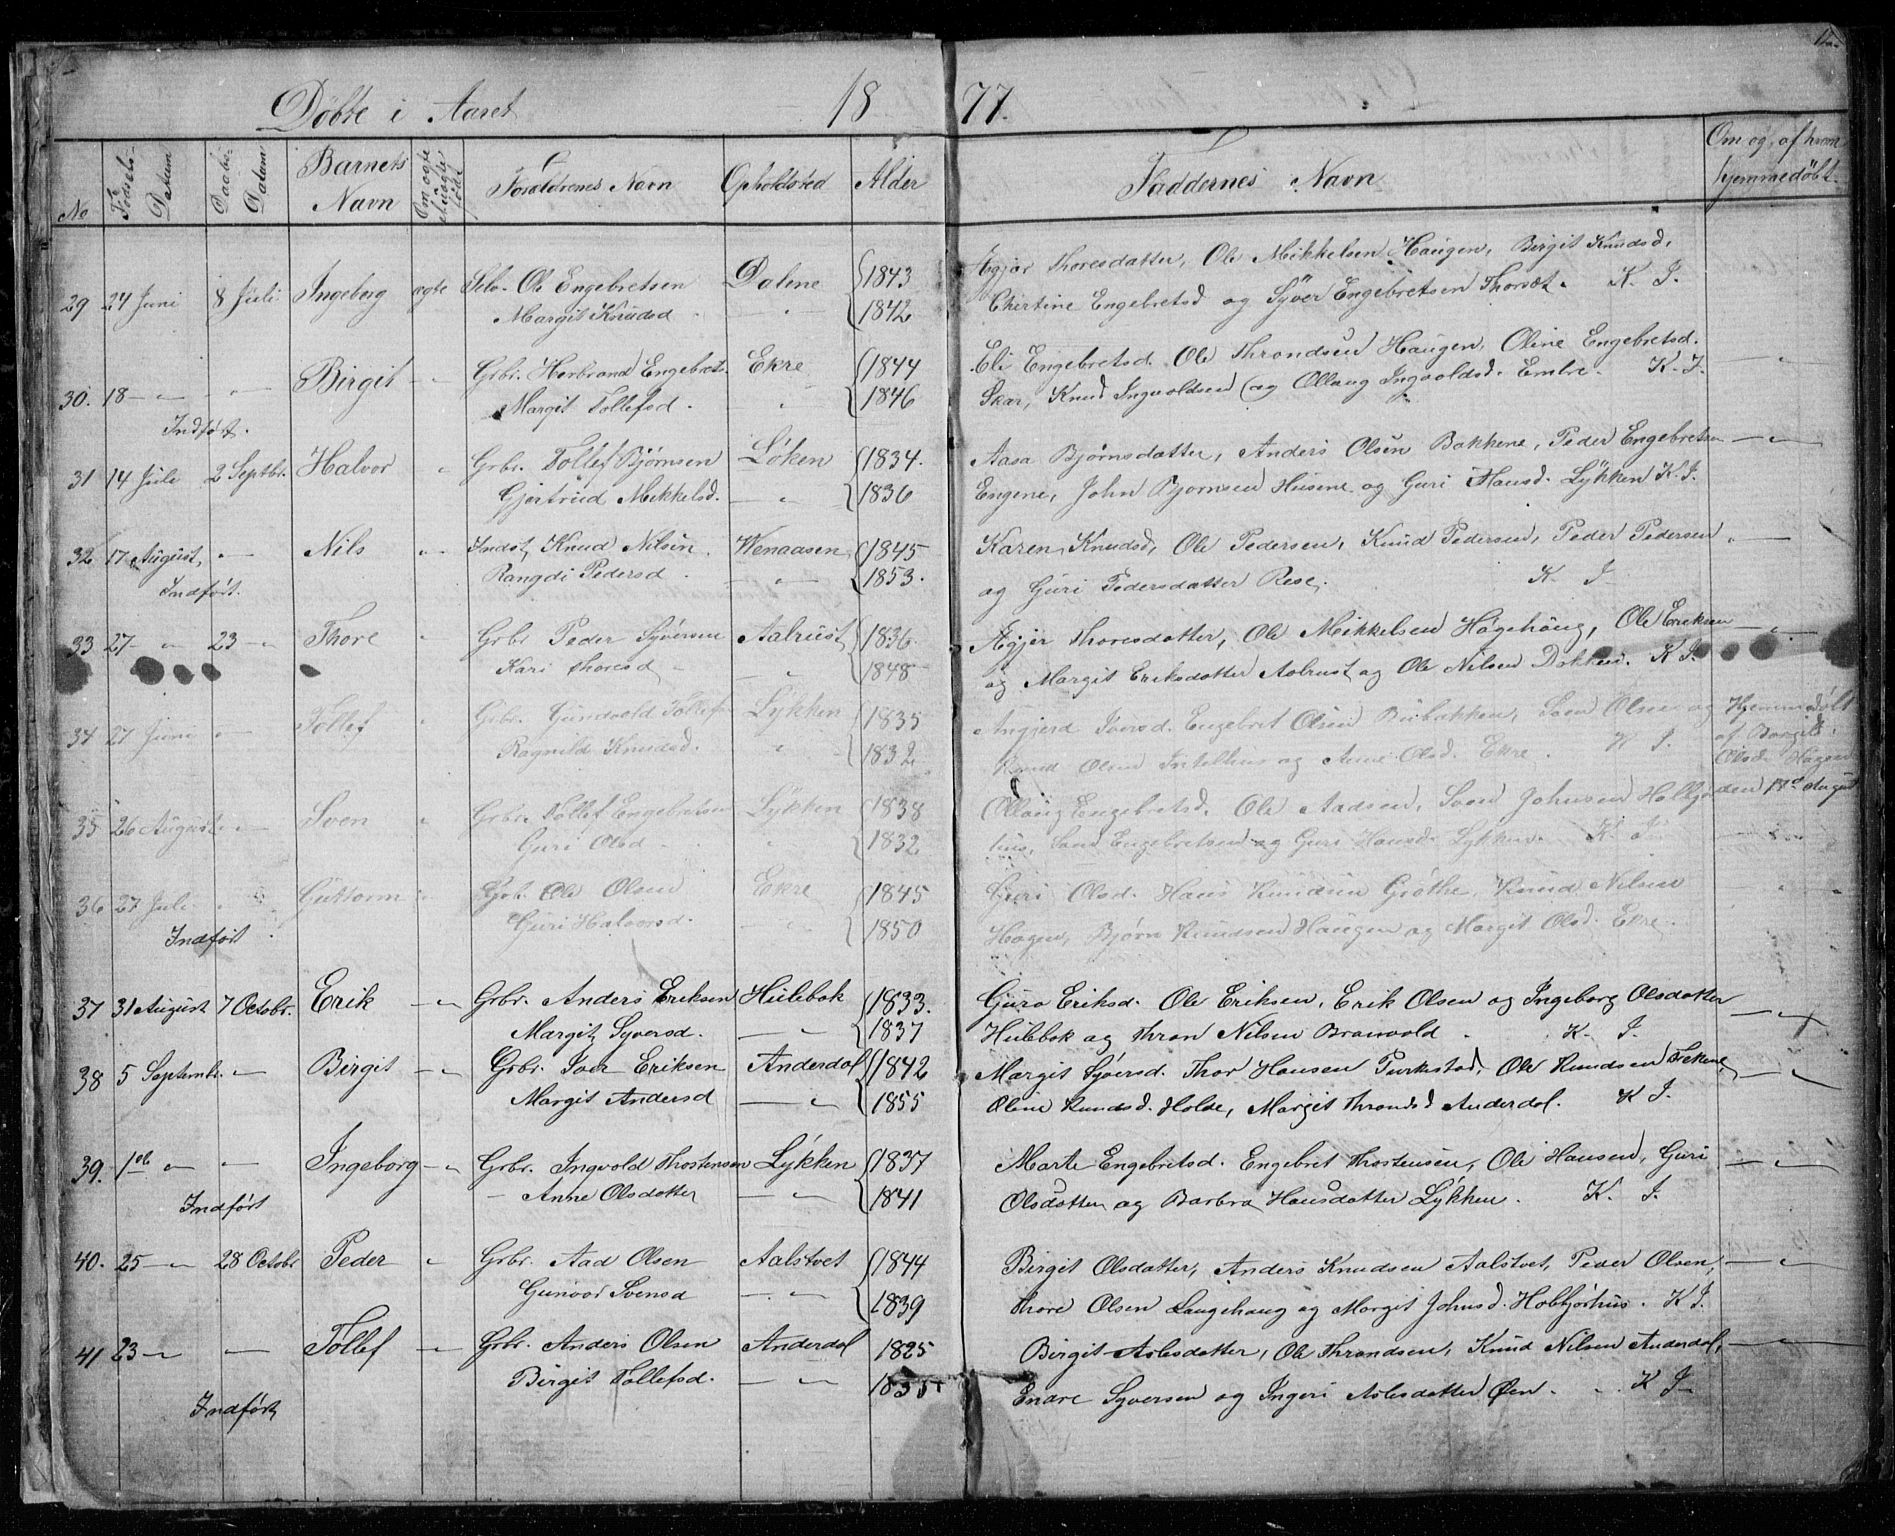 Döbte i Aaret 1877.
No Fødsels-Datum Daabs-Datum Barnets Navn Om ægte eller uægte født Forældrenes Navn Opholdsted Alder Faddernes Navn Om og af hvem hjemmedøbt
29 24 Juni 8 Juli Ingeborg ægte Selv. Ole Engebretsen Dalene 1843 Ægjør Thoresdatter, Ole Mikkelsen Haugen, Birgit Knudsd,
Margit Knudsd - " - 1842 Chirtine Engebretsd og Syver Engebretsen Thorset. K. J.
30. 18 - " - " - Birgit - " Grbr. Herbrand Engebrets. Ekre 1844 Eli Engebretsd. Ole Throndsen Haugen, Oline Engebretsd. "
Margit Tollefsd. " 1846 Skar, Knud Ingvoldsen og Ollaug Ingvoldsd. Embre. K. J.
Indført.
31 14 Juli 2 Septbr. Halvor " Grbr. Tollef Bjørnsen Løken 1834. Aasa Bjørnsdatter, Anders Olsen Bakkene, Peder Engebretsen - " -
Gjertrud Mikkelsd. - " 1836 Engene, John Bjørnsen Husene og Guri Hansd. Lykken K. J.
32 17 August, " - Nils " - Indst. Knud Nilsen Wenaasen 1845 Karen Knudsd, Ole Pedersen, Knud Pedersen, Peder Pedersen " -
Rangdi Pedersd. - " - 1853. og Guri Pedersdatter Rese. K. J.
Indført.
33 27 - " 23 - " Thore " Grbr Peder Syversen Aalrust 1836 Ægjer Thoresdatter, Ole Mikkelsen Høgehaug, Ole Eriksen - " -
Kari Thoresd - " 1848 og Margit Eriksdatter Aalrust og Ole Nilsen Dokken. K J.
34 27 Juni " - Tollef " Grbr. Gundvald Tollefs Lykken 1835 Angjerd Iversd. Engebret Olsen Bribakken, Sven Olsen og Hjemmedøbt
Ragnild Knudsd. " 1832 Knud Olsen og Anne Olsd. Ekre. K J. af Borgil
Olsd. Hagen
35 26 August " - Sven " Grbr. Tollef Engebretsen Lykken 1838 Ollaug Engebretsd. Ole Aadsen, Sven Johnsen Holbjør den August
Guri Olsd " 1832 hus, Sven Engebretsen og Guri Hansd. Lykken. K. J.
36 27 Juli " " Guttorm " Grbr. Ole Olsen Ekre 1845 Guri Olsd. Hans Knudsen Grøthe, Knud Nilsen " "
Guri Halvorsd. - " - 1850 Hagen, Bjørn Knudsen Haugen og Margit Olsd. Ekre.
Indført
37 31 August 7 Octobr. Erik - " Grbr. Anders Eriksen Hulebak 1833. Guro Eriksd. Ole Eriksen, Erik Olsen og Ingeborg Olsdatter - " -
Margit Syversd. - " 1837 Hulebak og Thron Nilsen Branvold. K. J.
38 5 Septembr. " - Birgit - " Grbr. Iver Eriksen Anderdal 1842 Margit Syversd. Thor Hansen Turkestad, Ole Knudsen - " -
Margit Andersd - " 1855 Oline Knudsd. Holde, Margit Throndsd Anderdal. K J.
39. 1 " - " - Ingeborg - " Grbr. Ingvold Thostensen Lykken 1837 Marte Engebritsd. Engebret Thostensen, Ole Hansen, Guri - " -
- Anne Olsdatter - " - 1841 Olsdatter og Barbra Hansdatter Lykken. K. J.
Indført
40. 25 - " 28 Octobr Peder " Grbr. Aad Olsen Aalstvet 1844 Birgit Olsdatter, Anders Knudsen Aalstvet, Peder Olsen, - " -
Gunvor Svensd - " - 1839 Thore Olsen Langehaug og Margit Johnsd. Holbjørhus. K J.
41 23 - " " - Tollef - " Grbr. Anders Olsen Anderdal 1825 Birgit Aslesdatter, Ole Throndsen, Knud Nilsen Anderdal, - " -
Birgit Tollefsd. - " - 1835 Endre Syversen og Ingeri Aslesdatter Øen. K J.
Indført